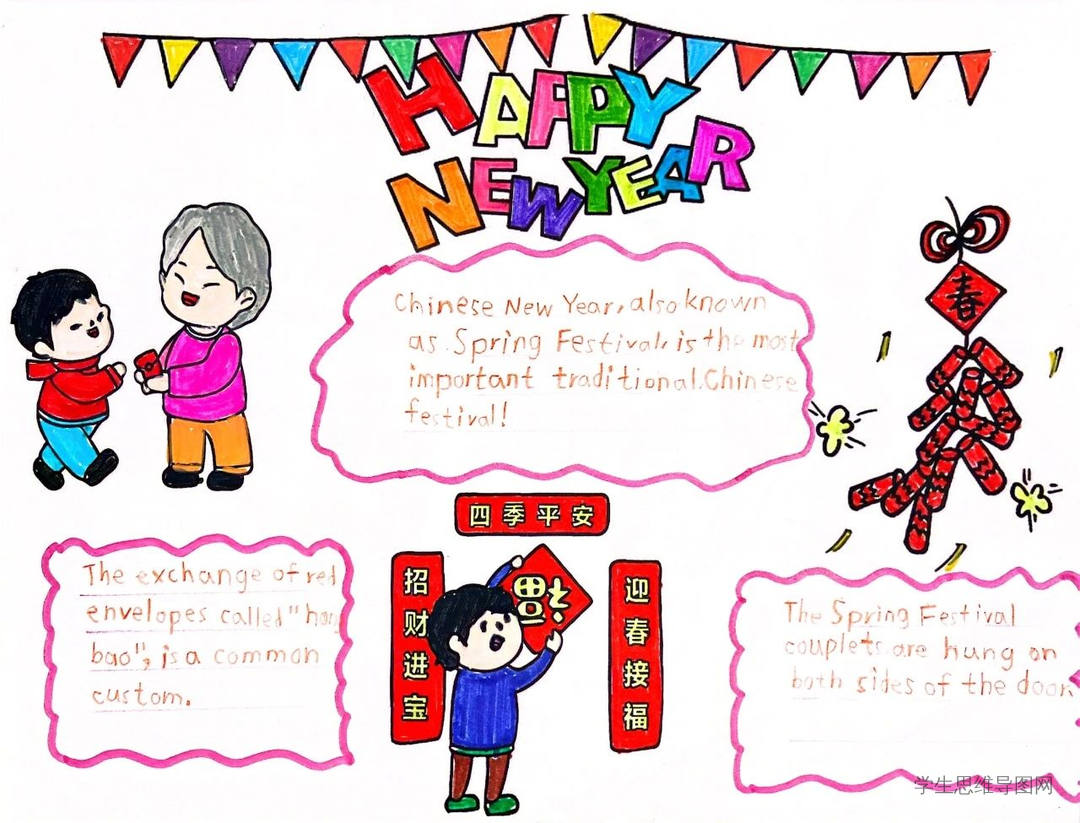 HAPPY
NEW YEAR
春
Chinese New Year, also known
as Spring Festival, is the most
important traditional Chinese
festival!
四季平安
招财进宝
福
迎春接福
The exchange of red
envelopes called "hong
bao", is a common
custom.
The Spring Festival
couplets are hung on
both sides of the door
学生思维导图网